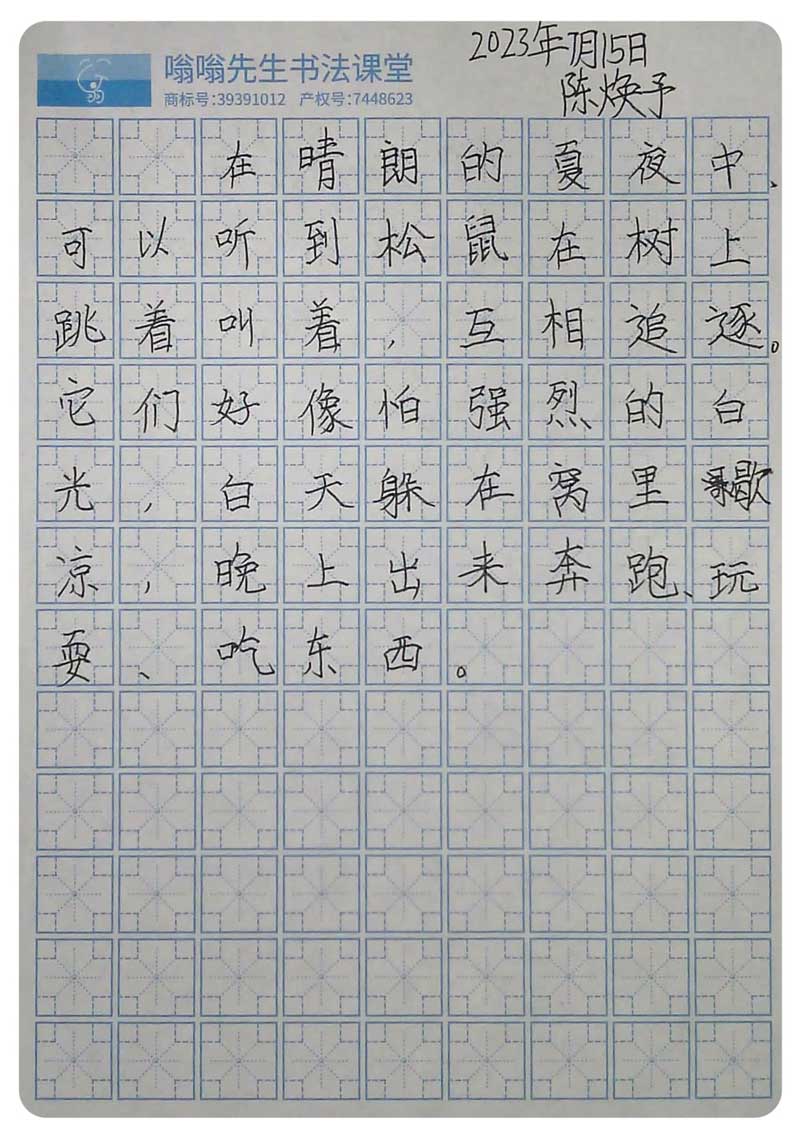 2023年7月15日
嗡嗡先生书法课堂
商标号:39391012 产权号:7448623
陈焕予
在晴朗的夏夜中、
可以听到松鼠在树上
跳着叫着，互相追逐。
它们好像怕强烈的白
光，白天躲在窝里歇
凉，晚上出来奔跑、玩
耍、吃东西。